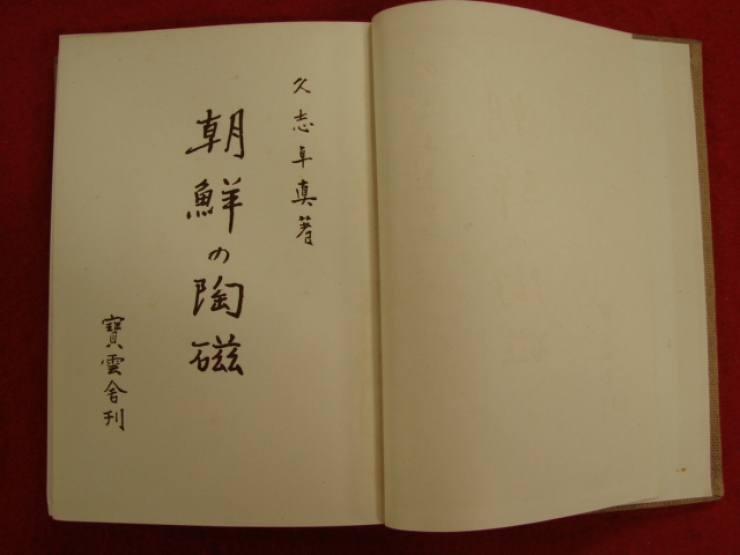 久志卓真著
朝鮮の陶磁
寶雲舎刊